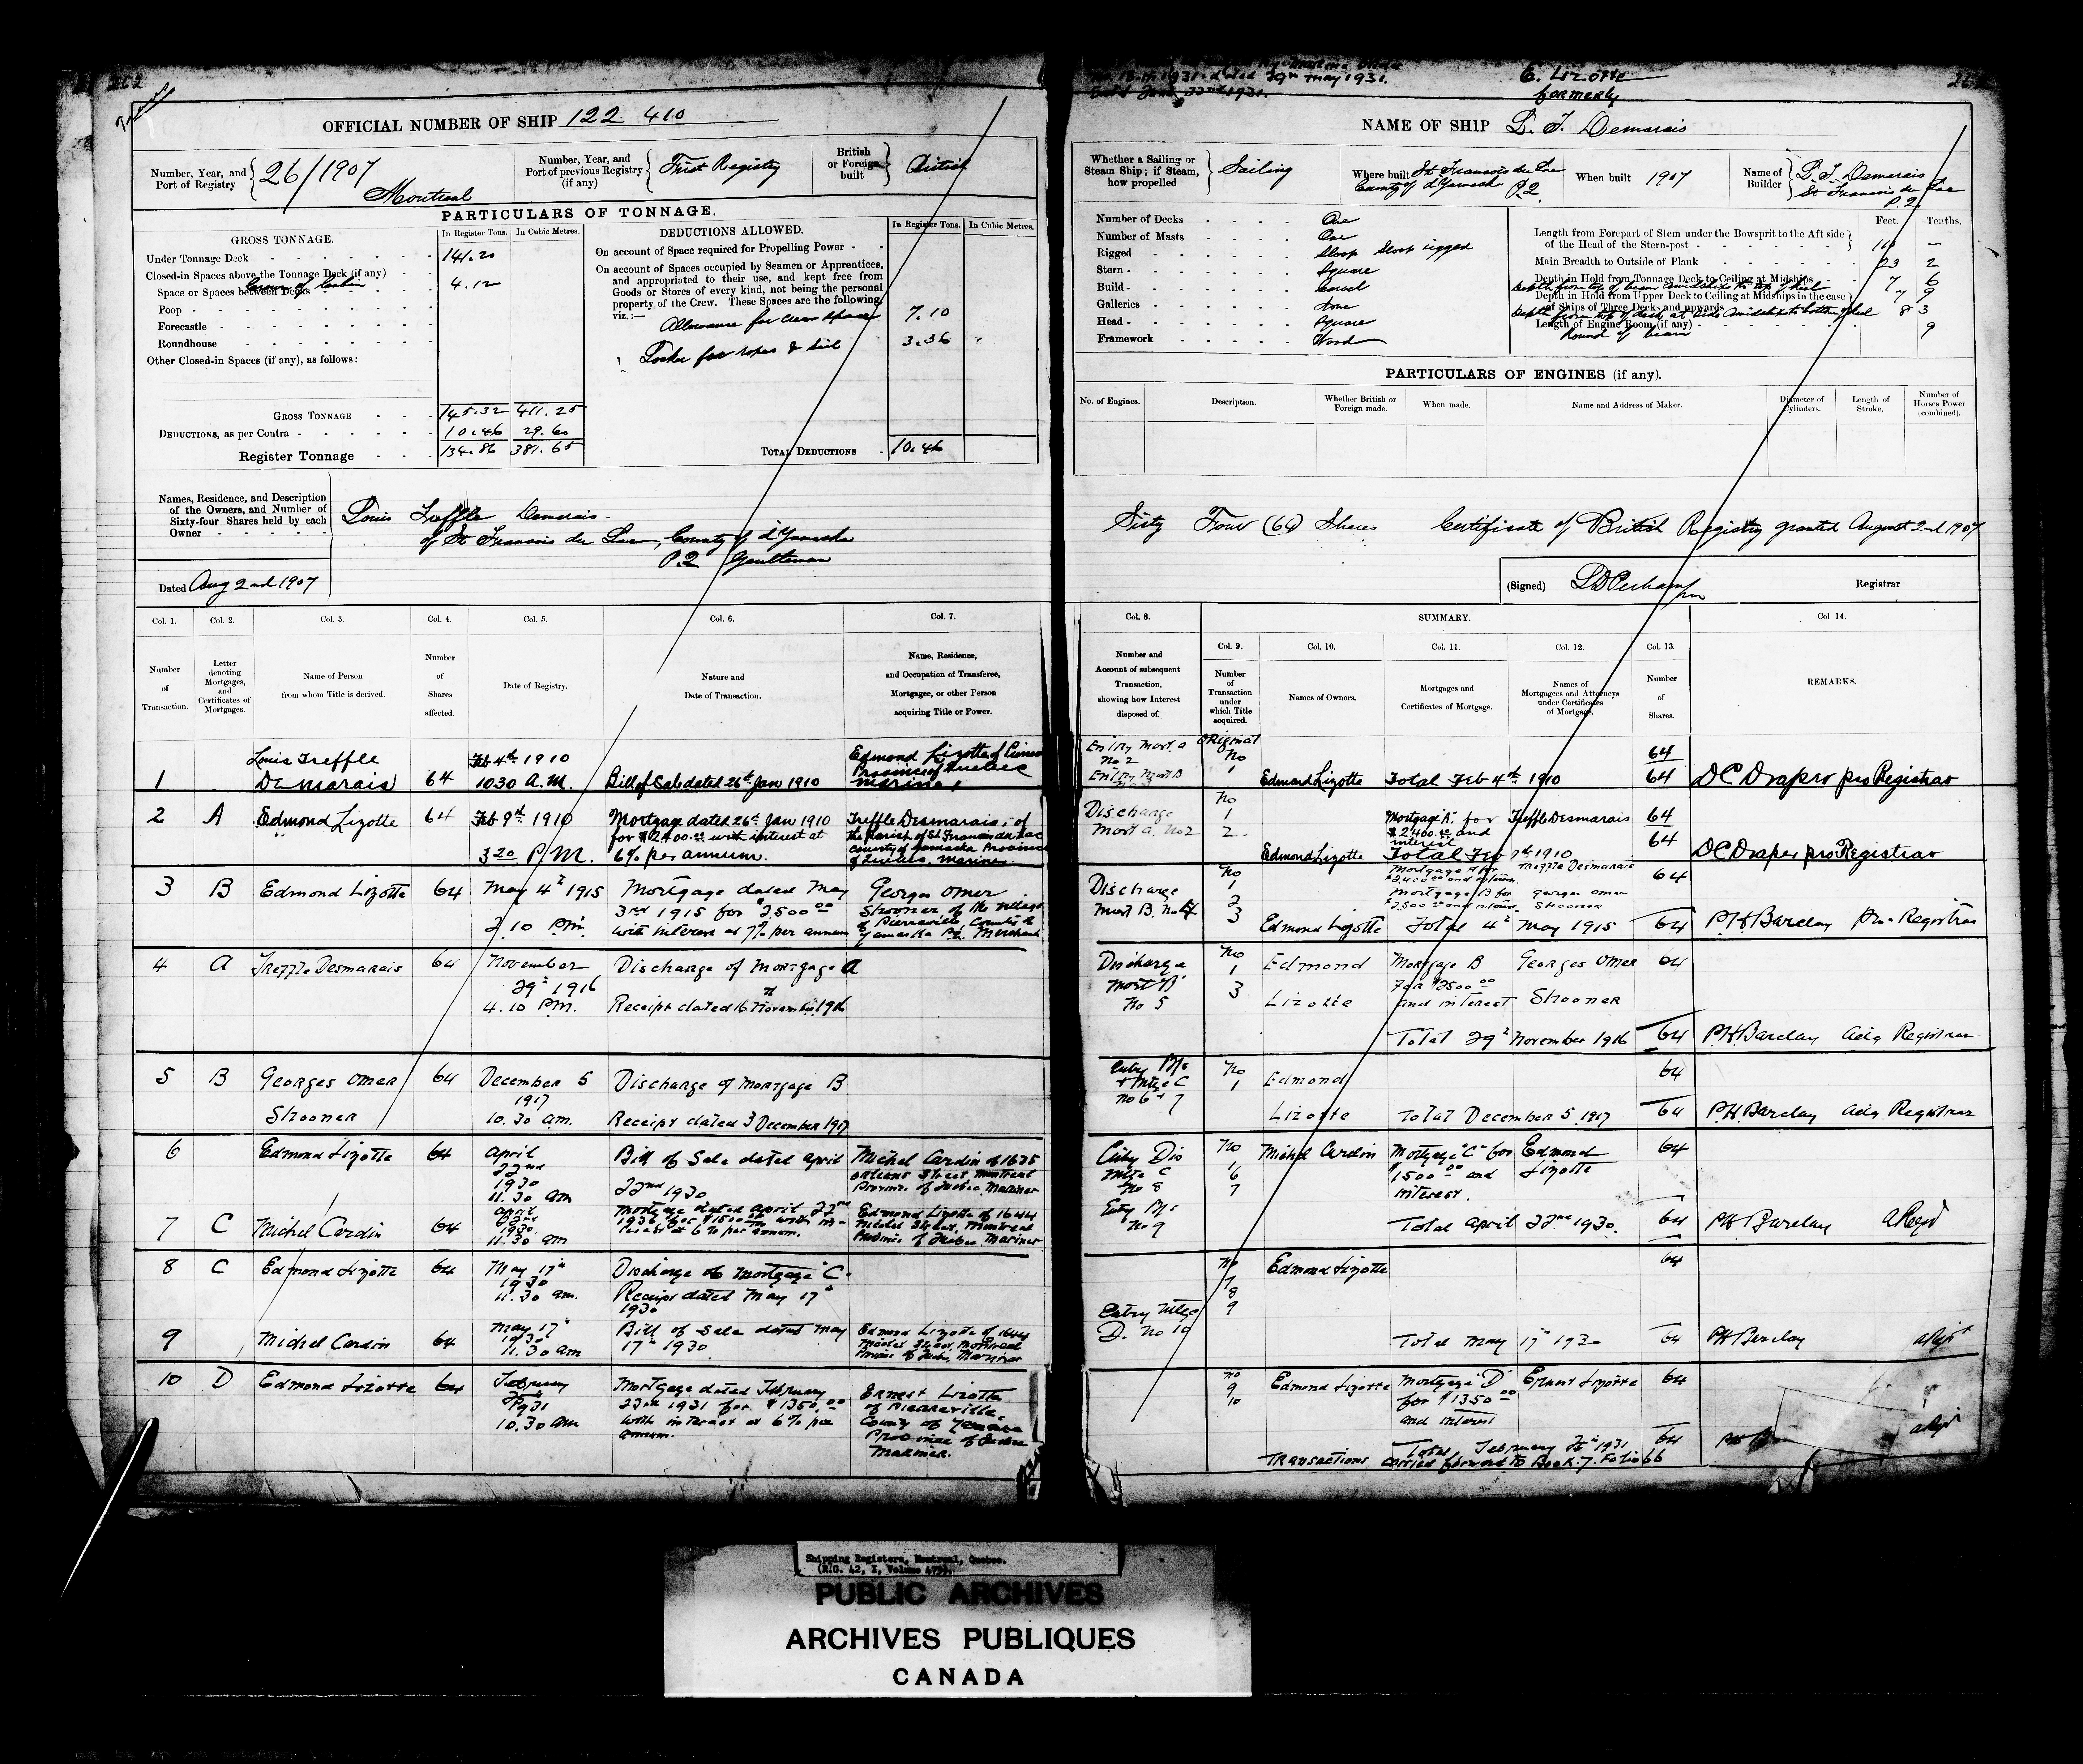 262
OFFICIAL NUMBER OF SHIP 122 410
Number, Year, and Port of Registry 26/1907 Montreal
Number, Year, and Port of previous Registry (if any) First Registry
British or Foreign built British
PARTICULARS OF TONNAGE.
GROSS TONNAGE.
In Register Tons. In Cubic Metres.
Under Tonnage Deck 141.20
Closed-in Spaces above the Tonnage Deck (if any)
Space or Spaces between Decks Crown of Cabin 4.12
Poop
Forecastle
Roundhouse
Other Closed-in Spaces (if any), as follows:
GROSS TONNAGE 145.32 411.25
DEDUCTIONS, as per Contra 10.46 29.60
Register Tonnage 134.86 381.65
DEDUCTIONS ALLOWED.
In Register Tons. In Cubic Metres.
On account of Space required for Propelling Power
On account of Spaces occupied by Seamen or Apprentices,
and appropriated to their use, and kept free from
Goods or Stores of every kind, not being the personal
property of the Crew. These Spaces are the following,
viz.:—
Allowance for crew space 7.10
Locker for ropes & sail 3.36
TOTAL DEDUCTIONS 10.46
Names, Residence, and Description
of the Owners, and Number of
Sixty-four Shares held by each
Owner
Louis Treffle Demarais
of St Francois du Lac, County of d'Yamaska
P.Q. Gentleman
Dated Aug 2nd 1907
Col. 1. Col. 2. Col. 3. Col. 4. Col. 5. Col. 6. Col. 7.
Number of Transaction.
Letter denoting Mortgages, and Certificates of Mortgages.
Name of Person from whom Title is derived.
Number of Shares affected.
Date of Registry.
Nature and Date of Transaction.
Name, Residence, and Occupation of Transferee, Mortgagee, or other Person acquiring Title or Power.
1 Louis Treffle Demarais 64 Feb 4th 1910 10.30 A.M. Bill of Sale dated 26th Jan 1910 Edmond Lizotte of Province of Quebec Mariner
2 A Edmond Lizotte 64 Feb 9th 1910 3.20 P.M. Mortgage dated 26th Jan 1910 for $2400.00 with interest at 6% per annum. Treffle Desmarais, of the parish of St Francis du Lac county of Yamaska Province of Quebec. Mariner.
3 B Edmond Lizotte 64 May 4th 1915 2.10 PM. Mortgage dated May 3rd 1915 for $2,500.00 with interest at 7% per annum Georges Omer Shooner of the village of Pierreville County of Yamaska P.Q. Merchant
4 A Treffle Desmarais 64 November 29th 1916 4.10 PM. Discharge of Mortgage A Receipt dated 16th November 1916
5 B Georges Omer Shooner 64 December 5 1917 10.30 am. Discharge of Mortgage B Receipt dated 3 December 1917
6 Edmond Lizotte 64 April 22nd 1930 11.30 am Bill of Sale dated April 22nd 1930 Michel Cardin of 1635 Orleans Street Montreal Province of Quebec Mariner
7 C Michel Cardin 64 April 22nd 1930 11.30 am Mortgage dated April 22nd 1930 for $1500.00 with interest at 6% per annum. Edmond Lizotte of 1644 Street, Montreal Province of Quebec Mariner
8 C Edmond Lizotte 64 May 17th 1930 11.30 am. Discharge of Mortgage "C" Receipt dated May 17th 1930
9 Michel Cardin 64 May 17th 1930 11.30 am Bill of Sale dated May 17th 1930 Edmond Lizotte of 1644 Street, Montreal Province of Quebec, Mariner
10 D Edmond Lizotte 64 February 1931 10.30 am Mortgage dated February 23rd 1931 for $1350.00 with interest at 6% per annum. Ernest Lizotte of Pierreville, County of Yamaska Province of Quebec Mariner.
1931 dated 29th May 1931.
June 22nd 1931.
E. Lizotte
formerly
NAME OF SHIP L. T. Demarais
Whether a Sailing or Steam Ship; if Steam, how propelled Sailing
Where built St Francois du Lac County of d'Yamaska P.Q.
When built 1907
Name of Builder L. T. Demarais St Francois du Lac P.Q.
Number of Decks One
Number of Masts One
Rigged Sloop Sloop rigged
Stern Square
Build Carvel
Galleries None
Head Square
Framework Wood
Feet. Tenths.
Length from Forepart of Stem under the Bowsprit to the Aft side
of the Head of the Stern-post
Main Breadth to Outside of Plank 23 2
Depth in Hold from Tonnage Deck to Ceiling at Midships 7 6
Depth from top of beam amidships to top of keel 7 9
Depth in Hold from Upper Deck to Ceiling at Midships in the case
of Ships of Three Decks and upwards
Depth from top of deck at side amidships to bottom of keel 8 3
Length of Engine Room (if any)
Round of beam 9
PARTICULARS OF ENGINES (if any).
No. of Engines. Description. Whether British or Foreign made. When made. Name and Address of Maker. Diameter of Cylinders. Length of Stroke. Number of Horses Power (combined).
Sixty Four (64) Shares Certificate of British Registry granted August 2nd 1907
(Signed) Registrar
SUMMARY.
Col. 8. Col. 9. Col. 10. Col. 11. Col. 12. Col. 13. Col 14.
Number and Account of subsequent Transaction, showing how Interest disposed of.
Number of Transaction under which Title acquired.
Names of Owners.
Mortgages and Certificates of Mortgage.
Names of Mortgagees and Attorneys under Certificates of Mortgage.
Number of Shares.
REMARKS.
Entry Mort. A No 2 Entry Mort B Original No 1 Edmond Lizotte Total Feb 4th 1910 64 64 D C Draper pro Registrar
Discharge Mort A, No 2 No 1 2. Edmond Lizotte Mortgage "A" for $2400.00 and interest Treffle Desmarais 64 Total Feb 9th 1910 64 D C Draper pro Registrar
Discharge Mort B. No No 1 2 3 Edmond Lizotte Mortgage A for $2,400.00 and interest Treffle Desmarais 64 Mortgage B for $2,500.00 and interest Georges Omer Shooner Total 4th May 1915 64 P.H. Barclay Pro Registrar
Discharge Mort "B" No 5 No 1 3 Edmond Lizotte Mortgage B For $2500.00 and interest Georges Omer Shooner 64 Total 29th November 1916 64 P.H. Barclay Actg Registrar
Entry B/S & Mtge C No 6 & 7 No 1 Edmond Lizotte 64 Total December 5, 1917 64 P.H. Barclay Actg Registrar
Entry Dis Mtge C No 8 Entry B/S No 9 No 6 7 Michel Cardin Mortgage "C" for $1500.00 and interest. Edmond Lizotte 64 Total April 22nd 1930. 64 P.H. Barclay
Entry Mtge D. No 10 No 7 8 9 Edmond Lizotte 64 Total May 17th 1930 64 P.H. Barclay
No 9 10 Edmond Lizotte Mortgage "D" for $1350.00 and interest Ernest Lizotte 64 Total February 1931 64
Transactions carried forward to Book 7. Folio 66
Shipping Registers, Montreal, Quebec.
(R.G. 42, I, Volume
PUBLIC ARCHIVES
ARCHIVES PUBLIQUES
CANADA